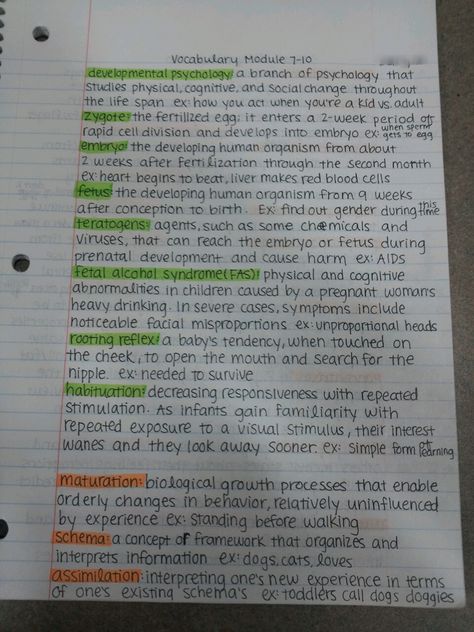 Vocabulary Module 7-10
developmental psychology: a branch of psychology that
studies physical, cognitive, and social change throughout
the life span ex: how you act when you're a kid vs. adult
zygote: the fertilized egg; it enters a 2-week period of
rapid cell division and develops into embryo ex: when sperm gets to egg
embryo: the developing human organism from about
2 weeks after fertilization through the second month
ex: heart begins to beat, liver makes red blood cells
fetus: the developing human organism from 9 weeks
after conception to birth. Ex: find out gender during this time
teratogens: agents, such as some chemicals and
viruses, that can reach the embryo or fetus during
prenatal development and cause harm ex: AIDS
fetal alcohol syndrome (FAS): physical and cognitive
abnormalities in children caused by a pregnant woman's
heavy drinking. In severe cases, symptoms include
noticeable facial misproportions ex: unproportional heads
rooting reflex: a baby's tendency, when touched on
the cheek, to open the mouth and search for the
nipple. ex: needed to survive
habituation: decreasing responsiveness with repeated
stimulation. As infants gain familiarity with
repeated exposure to a visual stimulus, their interest
wanes and they look away sooner. ex: simple form of learning
maturation: biological growth processes that enable
orderly changes in behavior, relatively uninfluenced
by experience ex: standing before walking
schema: a concept of framework that organizes and
interprets information ex: dogs, cats, loves
assimilation: interpreting one's new experience in terms
of one's existing schema's ex: toddlers call dogs doggies